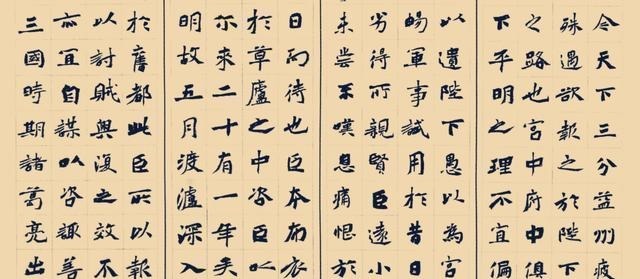 今天下三分益州疲
殊遇欲報之於陛下
之路也宮中府中俱
下平明之理不宜偏
以遺陛下愚以為宮
暢軍事試用於昔日
劣得所親賢臣遠小
未嘗不嘆息痛恨於
日而待也臣本布衣
於草廬之中咨臣以
尒來二十有一年矣
明故五月渡瀘深入
於舊都此臣所以報
以討賊興復之效不
亦宜自謀以咨諏善
三國時期諸葛亮出